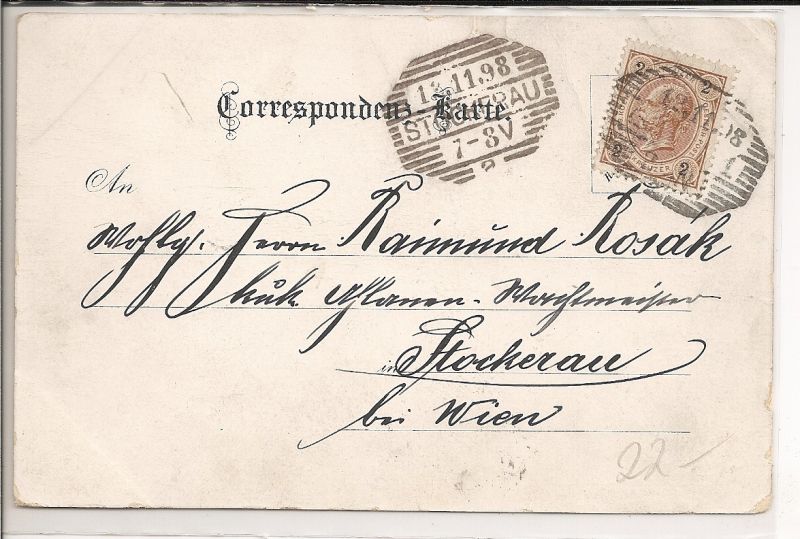 Correspondenz-Karte.
13.11.98
STOCKERAU
7-8V
2
2 2
2 KREUZER 2
98
1
An
Wohlg. Herrn Raimund Rosák
k.u.k. Uhlanen-Wachtmeister
in Stockerau
bei Wien
22-